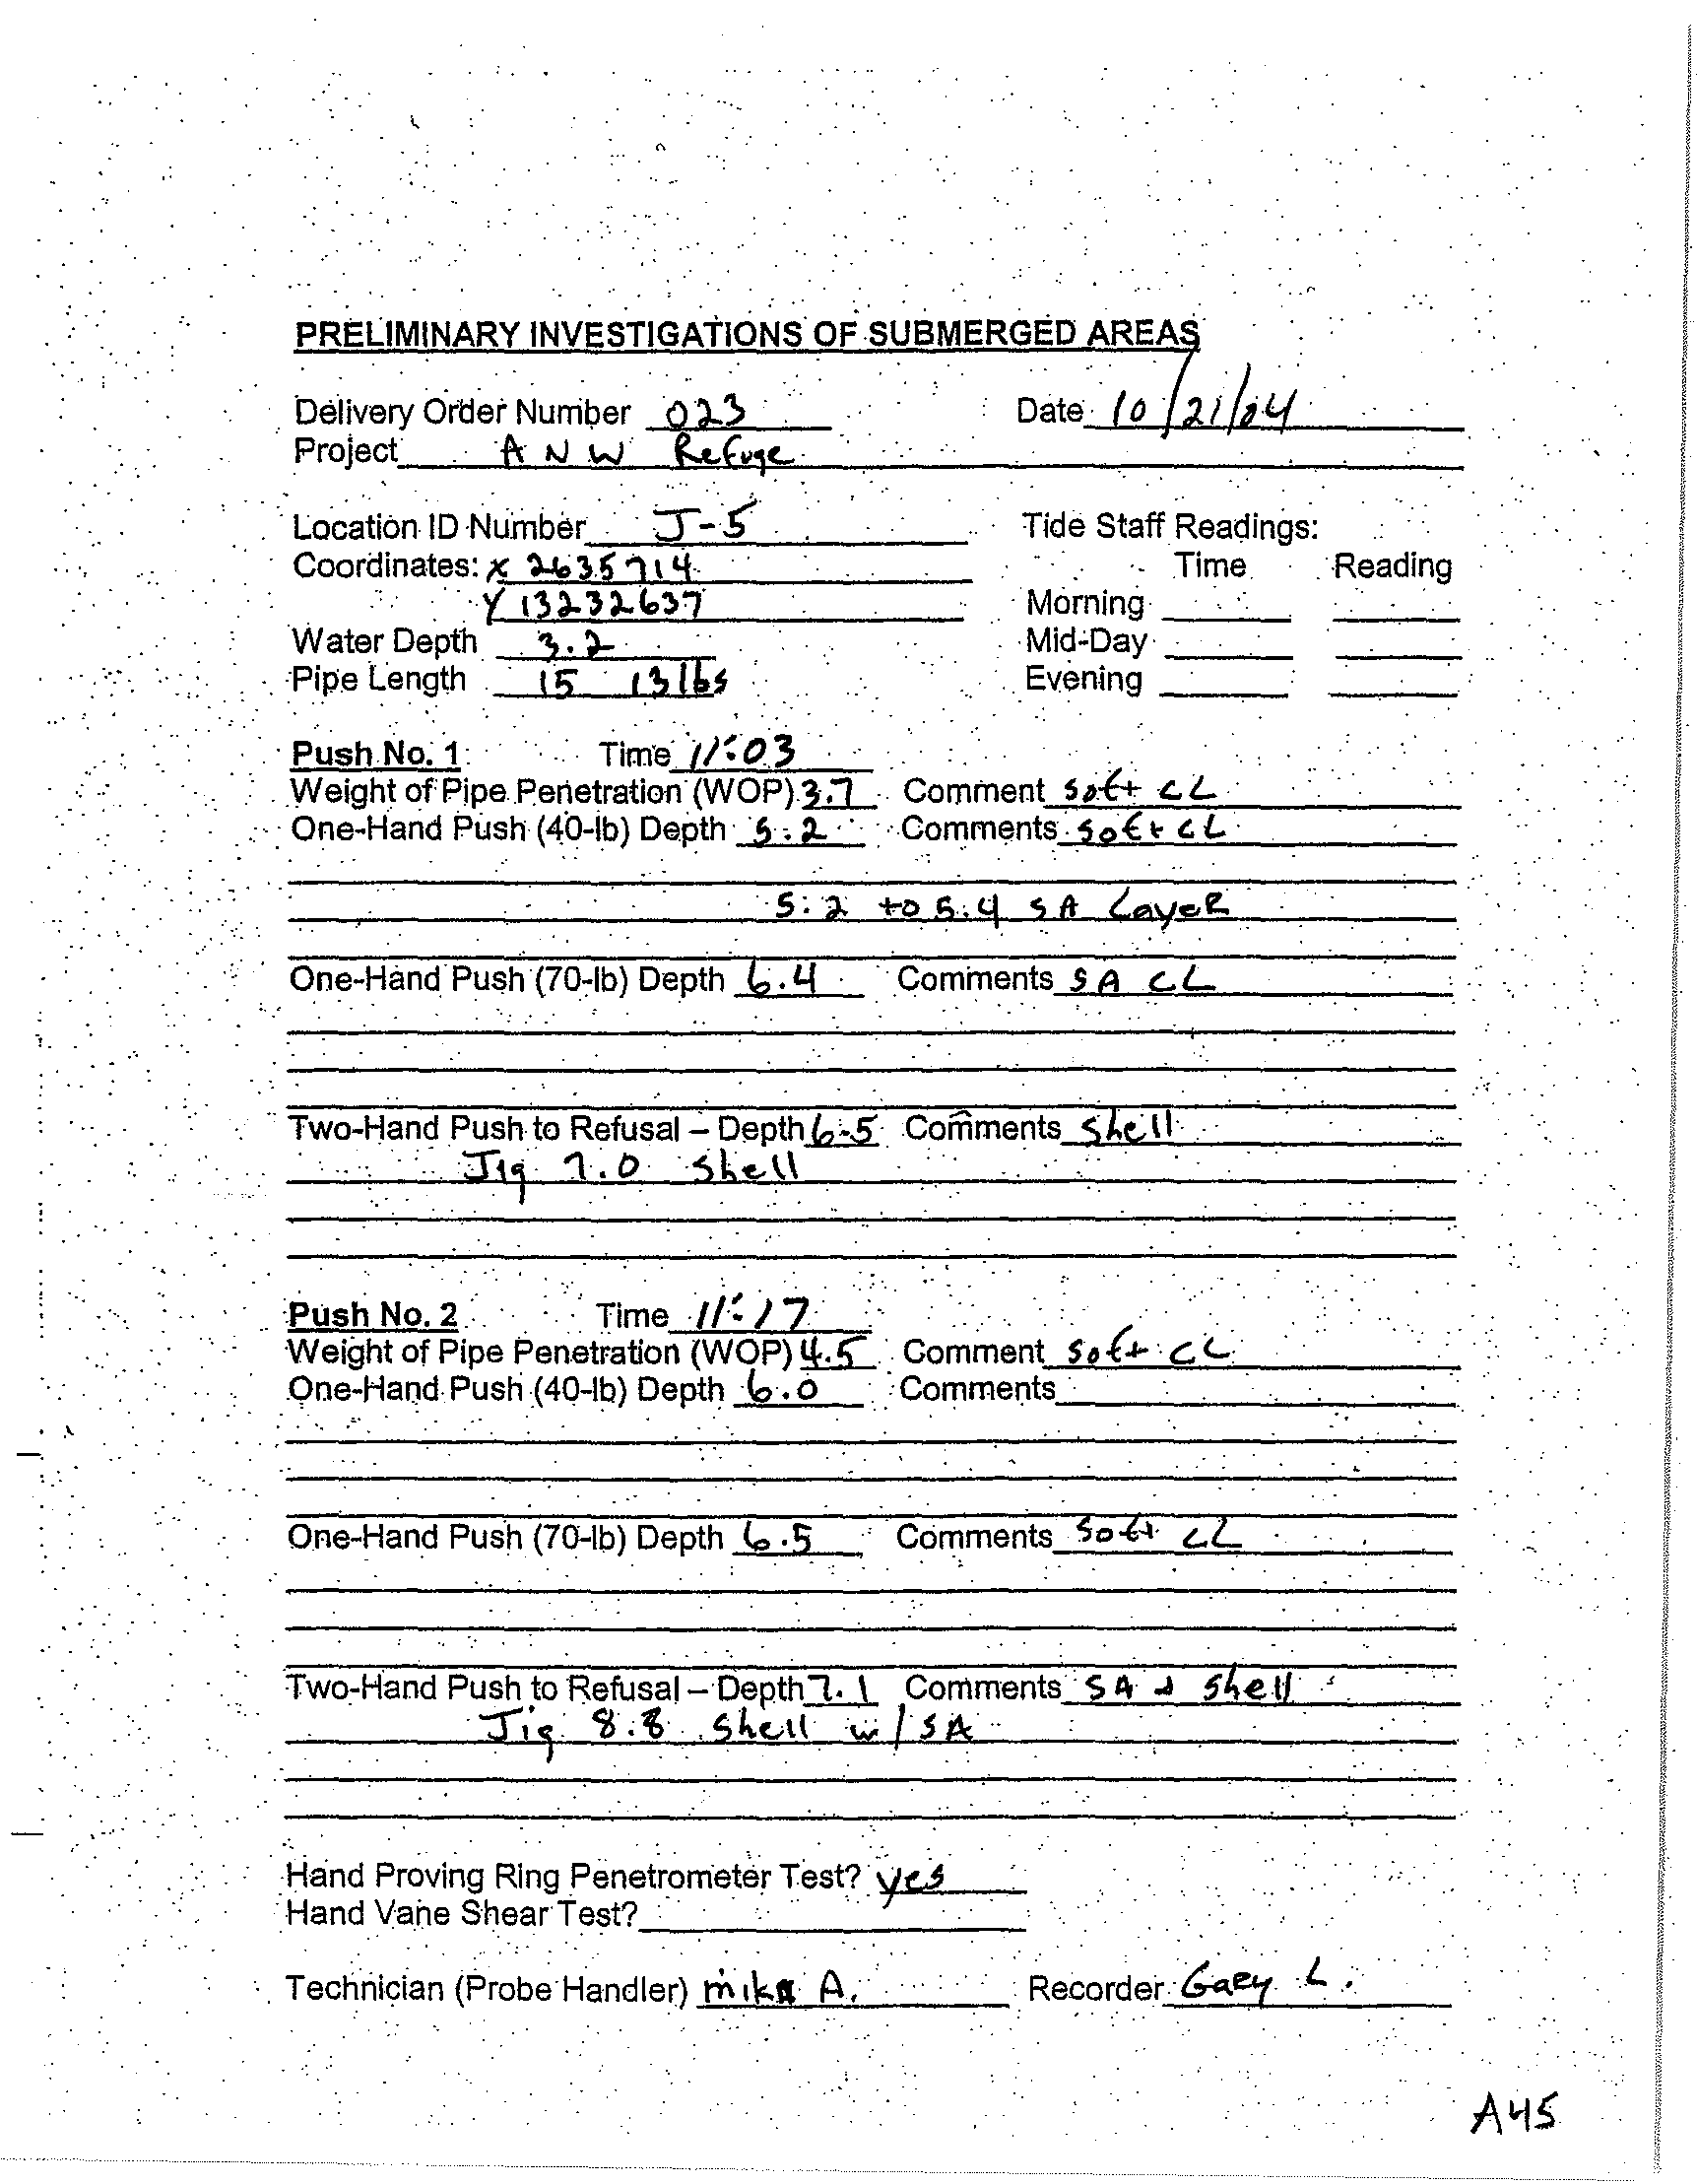 PRELIMINARY INVESTIGATIONS OF SUBMERGED AREAS
Delivery Order Number 023 Date 10/21/04
Project A N W Refuge
Location ID Number J-5 Tide Staff Readings:
Coordinates: X 2635714 Time Reading
Y 13232637 Morning
Water Depth 3.2 Mid-Day
Pipe Length 15 13 lbs Evening
Push No. 1 Time 11:03
Weight of Pipe Penetration (WOP) 3.7 Comment soft CL
One-Hand Push (40-lb) Depth 5.2 Comments soft CL
5.2 to 5.4 SA Layer
One-Hand Push (70-lb) Depth 6.4 Comments SA CL
Two-Hand Push to Refusal – Depth 6.5 Comments Shell
Jig 7.0 Shell
Push No. 2 Time 11:17
Weight of Pipe Penetration (WOP) 4.5 Comment Soft CL
One-Hand Push (40-lb) Depth 6.0 Comments
One-Hand Push (70-lb) Depth 6.5 Comments Soft CL
Two-Hand Push to Refusal – Depth 7.1 Comments SA & Shell
Jig 8.8 Shell w/ SA
Hand Proving Ring Penetrometer Test? yes
Hand Vane Shear Test?
Technician (Probe Handler) mike A. Recorder Gary L.
A45